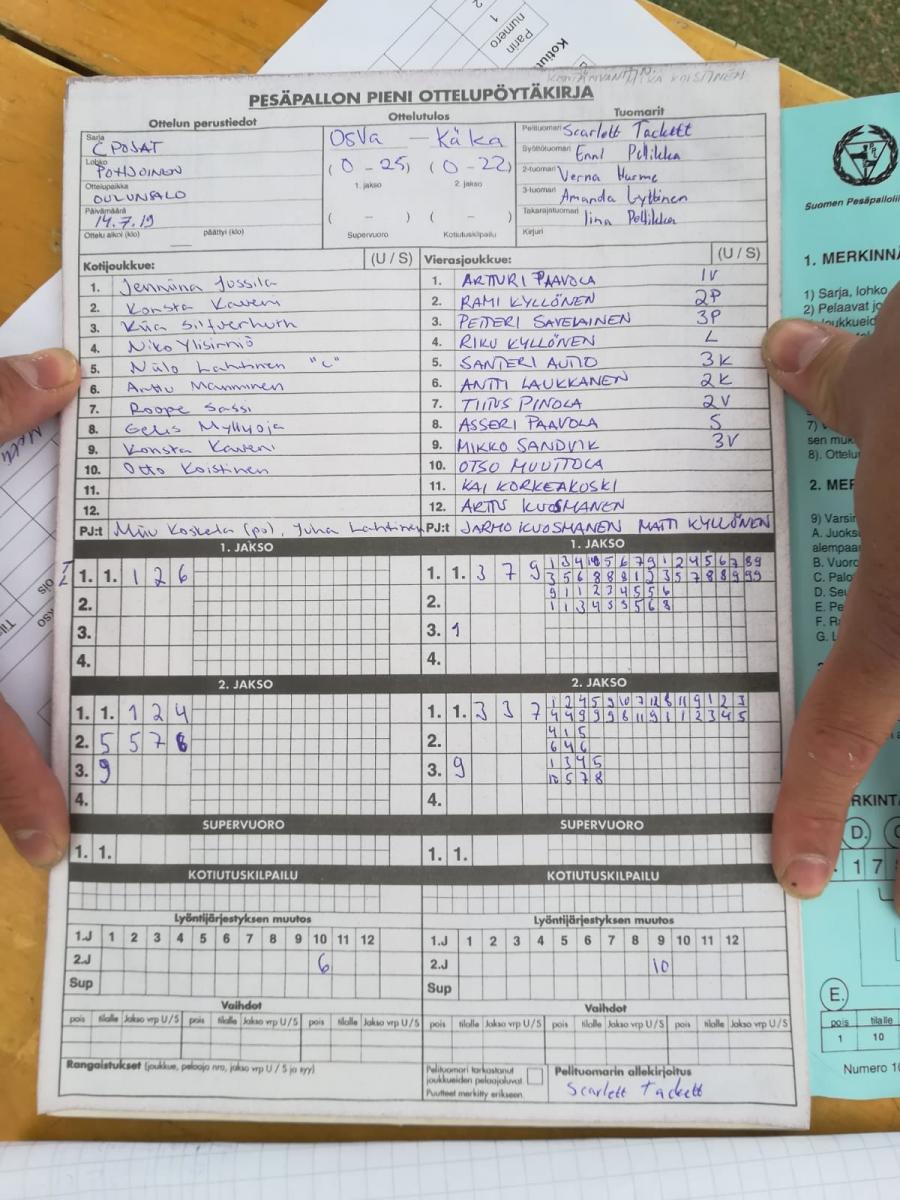 Parin
numero
1
2
KOISTINEN
PESÄPALLON PIENI OTTELUPÖYTÄKIRJA
Ottelun perustiedot
Ottelutulos
Tuomarit
Sarja
C POJAT
Lohko
POHJOINEN
Ottelupaikka
OULUNSALO
Päivämäärä
14.7.19
Ottelu alkoi (klo)
päättyi (klo)
OsVa — KäKa
(0 - 25) (0 - 22)
1. jakso
2. jakso
( - ) ( - )
Supervuoro
Kotiutuskilpailu
Pelituomari Scarlett Tackett
Syöttötuomari Enni Pellikka
2-tuomari Verna Hurme
3-tuomari Amanda Lyttinen
Takarajatuomari Iina Pellikka
Kirjuri
Kotijoukkue:
(U / S)
1. Jenniina Jussila
2. Konsta Kaveni
3.
4. Niko Ylisirniö
5. Niilo Lahtinen "C"
6. Arttu Manninen
7. Roope Sassi
8. Myllyoja
9. Konsta Kaveni
10. Otto Koistinen
11.
12.
PJ:t Miiu Koskela (po), Juha Lahtinen
Vierasjoukkue:
(U / S)
1. ARTTURI PAAVOLA 1V
2. RAMI KYLLÖNEN 2P
3. PETTERI SAVELAINEN 3P
4. RIKU KYLLÖNEN L
5. SANTERI AUTIO 3K
6. ANTTI LAUKKANEN 2K
7. TIITUS PINOLA 2V
8. ASSERI PAAVOLA S
9. MIKKO SANDVIK 3V
10. OTSO MUUTTOLA
11. KAI KORKEAKOSKI
12. ARTTU KUOSMANEN
PJ:t JARMO KUOSMANEN MATTI KYLLÖNEN
1. JAKSO
1. 1. 1 2 6
2.
3.
4.
1. JAKSO
1. 1. 3 7 9
2.
9 1 1 2 3 4 5 5 6
1 1 3 4 5 5 5 6 8
3. 1
4.
2. JAKSO
1. 1. 1 2 4
2. 5 5 7 8
3. 9
4.
2. JAKSO
1. 1. 3 3 7
1 2 4 5 9 10 7 12 8 11 9 1 2 3
4 4 9 9 9 8 11 9 1 1 2 3 4 5
2.
4 1 5
6 4 6
3. 9
1 3 4 5
10 5 7 8
4.
SUPERVUORO
1. 1.
SUPERVUORO
1. 1.
KOTIUTUSKILPAILU
KOTIUTUSKILPAILU
Lyöntijärjestyksen muutos
1.J 1 2 3 4 5 6 7 8 9 10 11 12
2.J 6
Sup
Lyöntijärjestyksen muutos
1.J 1 2 3 4 5 6 7 8 9 10 11 12
2.J 10
Sup
Vaihdot
pois tilalle Jakso vrp U/S pois tilalle Jakso vrp U/S pois tilalle Jakso vrp U/S
Vaihdot
pois tilalle Jakso vrp U/S pois tilalle Jakso vrp U/S pois tilalle Jakso vrp U/S
Rangaistukset (joukkue, pelaaja nro, jakso vrp U / S ja syy)
Pelituomari tarkastanut
joukkueiden pelaajaluvat
Puutteet merkitty erikseen
Pelituomarin allekirjoitus
Scarlett Tackett
Suomen Pesäpalloliit
1. MERKINNÄ
1) Sarja, lohko
2) Pelaavat jo
7)
sen muk
8). Ottelu
2. MER
9) Varsin
A. Juoks
alempaan
B. Vuoro
C. Palo
D. Seu
E. Pe
F. Ra
G. L
RKINTÄ
D.
1 7
E.
pois tilalle
1 10
Numero 10